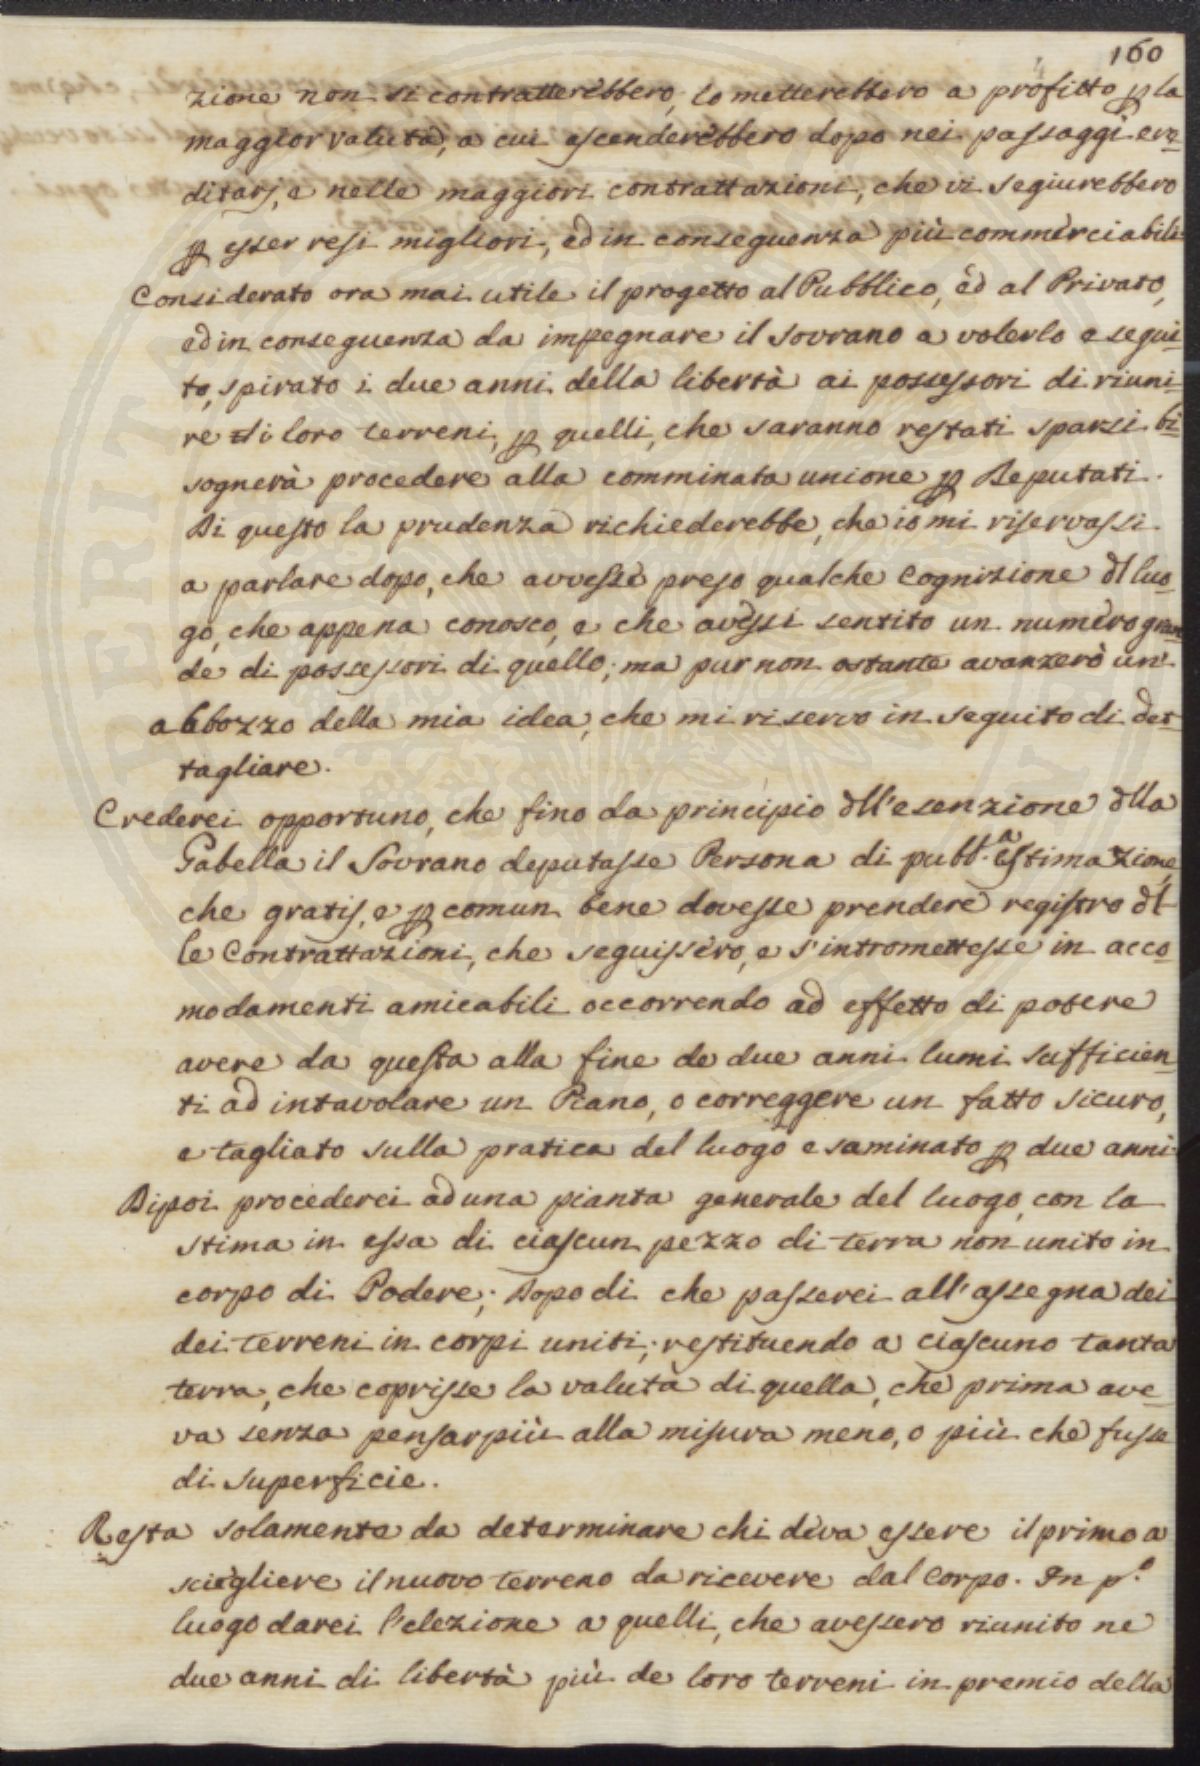 160
zione non si contratterebbero, lo metterebbero a profitto p la
maggior valuta, a cui ascenderebbero dopo nei passaggi ere=
ditarj, e nelle maggiori contrattazioni, che vi segiurebbero
p esser resi migliori, ed in conseguenza più commerciabili
Considerato ora mai utile il progetto al Pubblico, ed al Privato,
ed in conseguenza da impegnare il Sovrano a volerlo esegui=
to, spirato i due anni della libertà ai possessori di riuni=
re di loro terreni, p quelli, che saranno restati sparsi bi=
sognerà procedere alla comminata unione p Deputati.
Di questo la prudenza richiederebbe, che io mi riservassi
a parlare dopo, che avessi preso qualche Cognizione dl luo=
go, che appena conosco, e che avessi sentito un numero gran=
de di possessori di quello; ma pur non ostante avanzerò un'
abbozzo della mia idea, che mi riservo in seguito di det=
tagliare.
Crederei opportuno, che fino da principio dll'esenzione dlla
Gabella il Sovrano deputasse Persona di pubb.a estimazione,
che gratis, e p comun bene dovesse prendere registro dl=
le Contrattazioni, che seguissero, e s'intromettesse in acco=
modamenti amicabili occorrendo ad effetto di potere
avere da questa alla fine de due anni lumi sufficien=
ti ad intavolare un Piano, o correggere un fatto sicuro,
e tagliato sulla pratica del luogo esaminato p due anni
Dipoi procederei ad una pianta generale del luogo, con la
stima in essa di ciascun pezzo di terra non unito in
corpo di Podere; Dopo di che passerei all'assegna dei
dei terreni in corpi uniti; restituendo a ciascuno tanta
terra, che coprisse la valuta di quella, che prima ave=
va senza pensar più alla misura meno, o più che fusse
di superficie.
Resta solamente da determinare chi deva essere il primo a
sciegliere il nuovo terreno da ricevere dal Corpo. In p.o
luogo darei l'elezione a quelli, che avessero riunito ne
due anni di libertà più de loro terreni in premio della